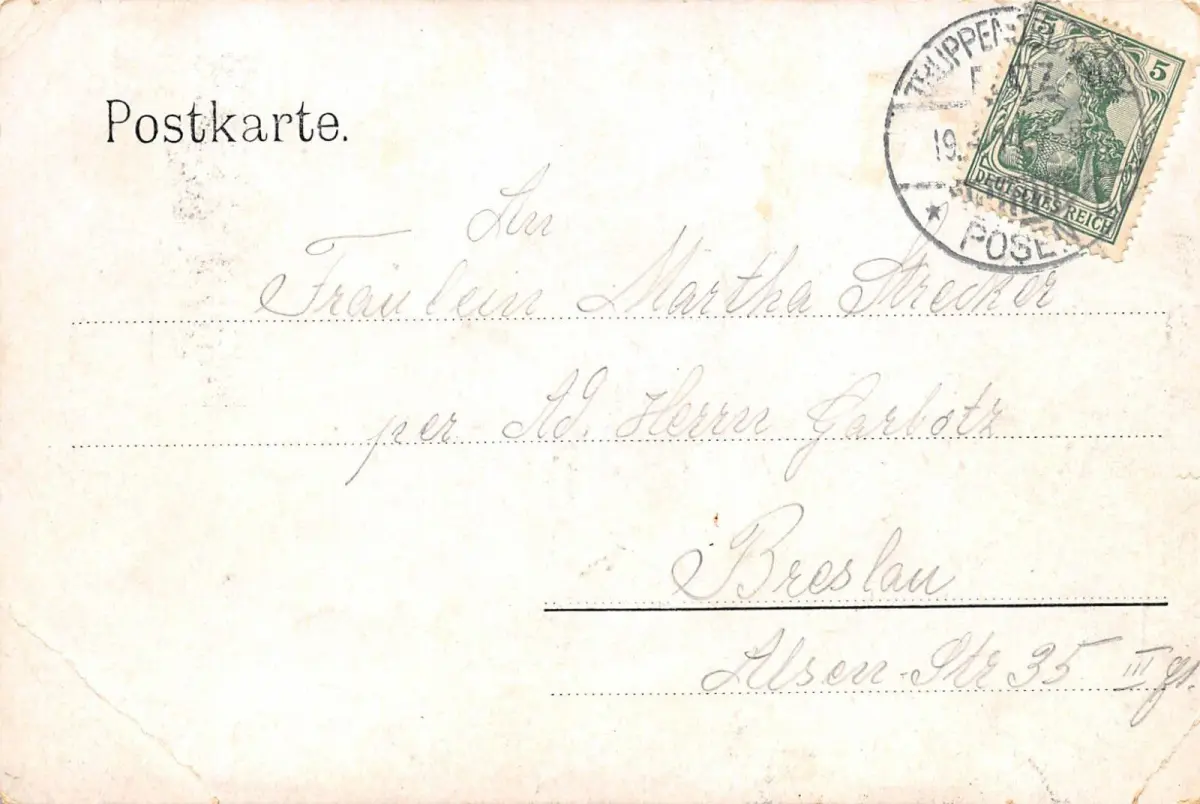 Postkarte.
5 5
DEUTSCHES REICH
19.
POSE
An
Fräulein Martha Strecker
per Ad. Herrn Garbotz
Breslau
Alsen-Str 35 III